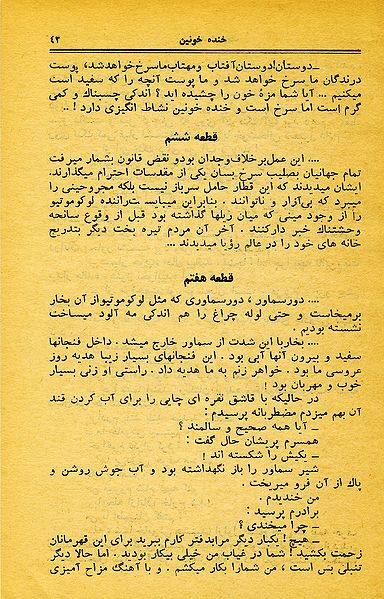 خنده خونین
۴۳
ــ دوستان! دوستان آفتاب و مهتاب ما سرخ خواهد شد، پوست
درندگان ما سرخ خواهد شد و ما پوست آنچه را که سفید است
میکنیم ... آیا شما مزهٔ خون را چشیده اید؟ اندکی چسبناك و کمی
گرم است اما سرخ است و خنده خونین نشاط انگیزی دارد! ..
قطعه ششم
.... این عمل برخلاف وجدان بود و نقض قانون بشمار میرفت
تمام جهانیان بصلیب سرخ بسان یکی از مقدسات احترام میگذارند.
ایشان میدیدند که این قطار حامل سرباز نیست بلکه مجروحینی را
میبرد که بی‌آزار و ناتوانند . بنابراین میبایست راننده لوکوموتیو
را از وجود مینی که میان ریلها گذاشته بود قبل از وقوع سانحه
وحشتناك خبردار کنند . آخر آن مردم تیره بخت دیگر بتدریج
خانه های خود را در عالم رؤیا میدیدند ...
قطعه هفتم
.... دور سماور ، دور سماوری که مثل لوکوموتیو از آن بخار
برمیخاست و حتی لوله چراغ را هم اندکی مه آلود میساخت
نشسته بودیم .
.... بخار با این شدت از سماور خارج میشد . داخل فنجانها
سفید و بیرون آنها آبی بود . این فنجانهای بسیار زیبا هدیه روز
عروسی ما بود . خواهر زنم به ما هدیه داد . راستی او زنی بسیار
خوب و مهربان بود !
در حالیکه با قاشق نقره ای چایی را برای آب کردن قند
آن بهم میزدم مضطربانه پرسیدم :
ــ آیا همه صحیح و سالمند ؟
همسرم پریشان حال گفت :
ــ یکیش را شکسته اند !
شیر سماور را باز نگهداشته بود و آب جوش روشن و
پاك از آن فرو میریخت .
من خندیدم .
برادرم پرسید :
ــ چرا میخندی ؟
ــ هیچ ! یکبار دیگر مرا بدفتر کارم ببرید برای این قهرمانان
زحمت بکشید ! شما در غیاب من خیلی بیکار بودید . اما حالا دیگر
تنبلی بس است ، من شما را بکار میکشم . و با آهنگ مزاح آمیزی